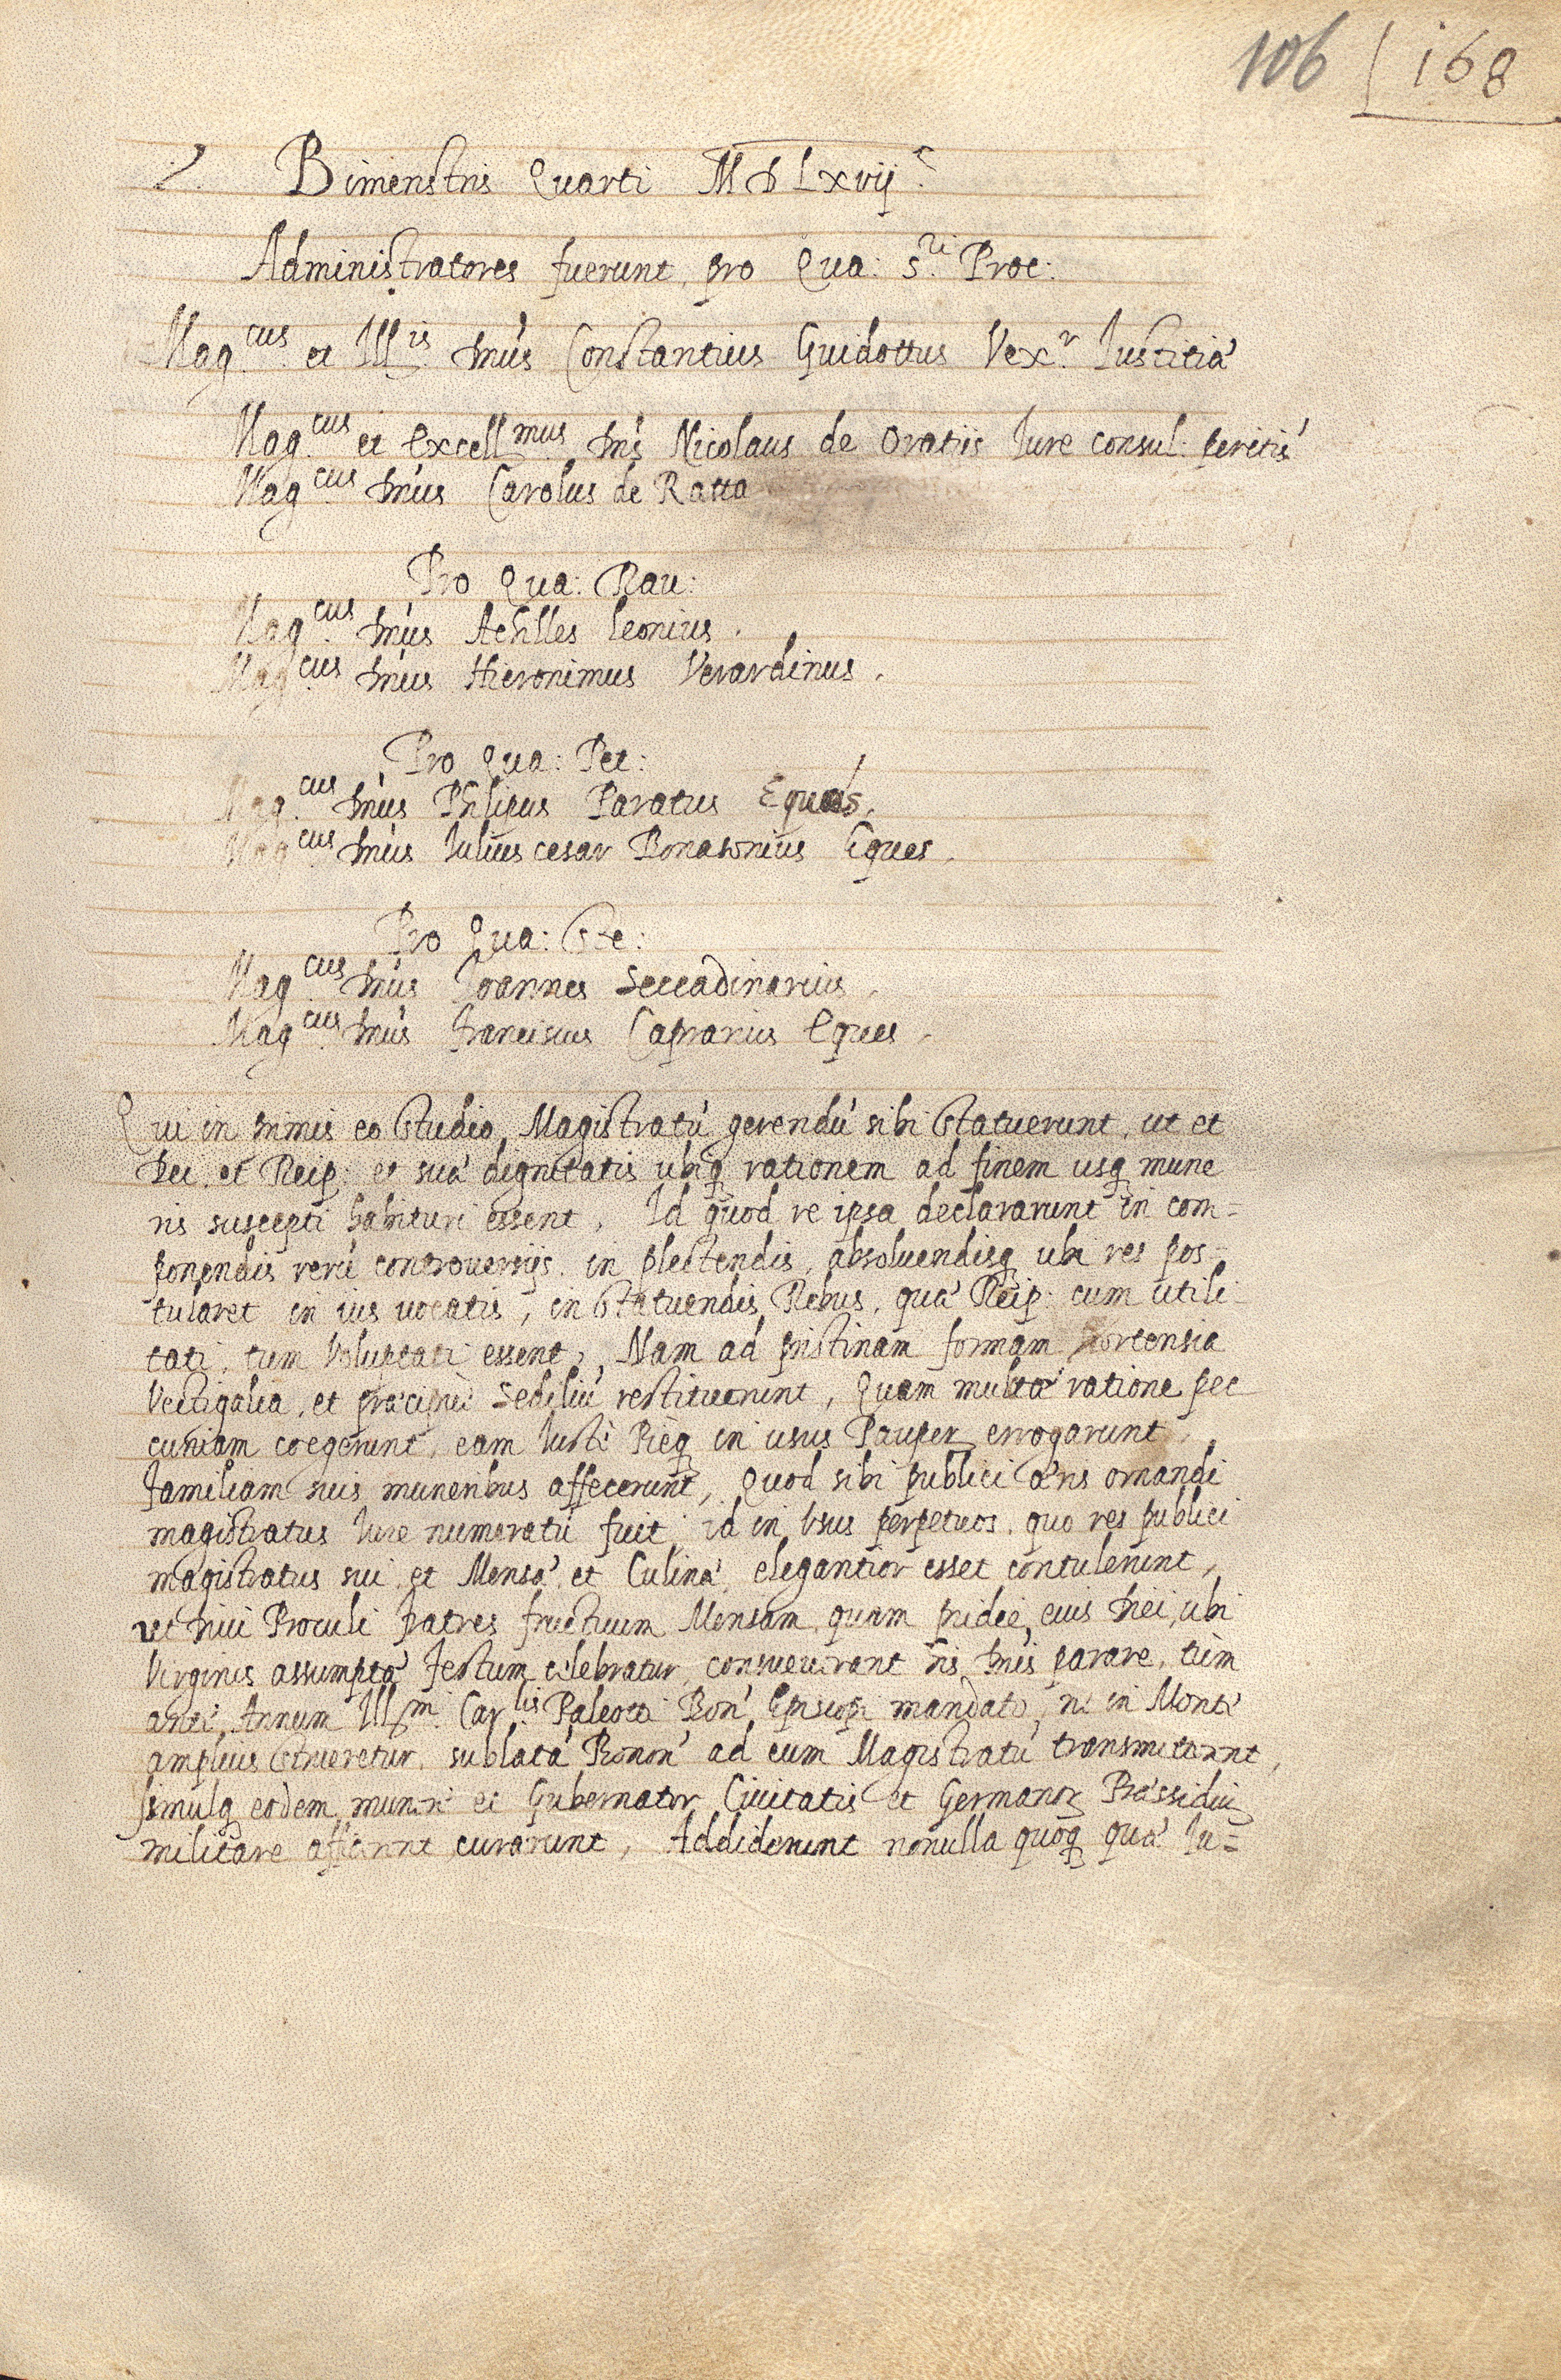 106 | 168
Bimenstris Quarti MDLxvij
Administratores fuerunt, pro Qua: S.ti Proc:
Mag.cus et Ill.is Dnus Constantius Guidottus Vex.r Iustitia
Mag.cus et excell.mus Dns Nicolaus de Oratiis Iure consul: peritis
Mag.cus Dnus Carolus de Ratta
Pro Qua: Rav:
Mag.cus Dnus Achlles leonius.
Mag.cus Dnus Hieronimus Verardinus.
Pro Qua: Pet:
Mag.cus Dnus Philipus Paratus Eques.
Mag.cus Dnus Iulius cesar Bonasonius Eques.
Pro Qua: Ste:
Mag.cus Dnus Ioannes Seccadinarius.
Mag.cus Dnus Franciscus Caprarius Eques.
Qui in primis eo Studio, Magistratu' gerendu' sibi Statuerunt, ut et
Dei, et Reip: et sua' dignitatis ubiq rationem ad finem usq mune
ris suscepti habituri essent, Id quod re ipsa declararunt in com=
ponendis reru' controversijs. in plectendis, absoluendisq ubi res pos=
tularet in ius vocatis, in Statuendis Rebus, qua' Reip: cum utili
tati, tum Voluptati essent, Nam ad pristinam formam Hortensia
Vectigalia, et pracipue' sediliu' restituerunt, Quam multa' ratione pec
cuniam coegerunt, eam Iuste Pieq in usus Pauper, errogarunt,
Familiam suis muneribus affecerunt, Quod sibi publici aris ornandi
magistratus Iure numeratu' fuit, id in Usus perpetuos, quo res publici
magistratus sui, et Mensa', et Culina', elegantior esset contulerunt,
ut Divi Proculi Fatres fructuum Mensam, quam pridie, eius Diei, ubi
Virginis assumpta' Festum celebratur, consueverant iis Dnis parare, tum
ante Annum Ill.mi Car.lis Paleotti Bon' Episcopi mandato, ne in Monte
amplius Strueretur, sublata' Bonon' ad eum Magistratu' transmiterent,
simulq eodem munere et Gubernator Civitatis et Germanor Prassidiu
militare afficerent curarunt, Addiderunt nonulla quoq qua' Iu=